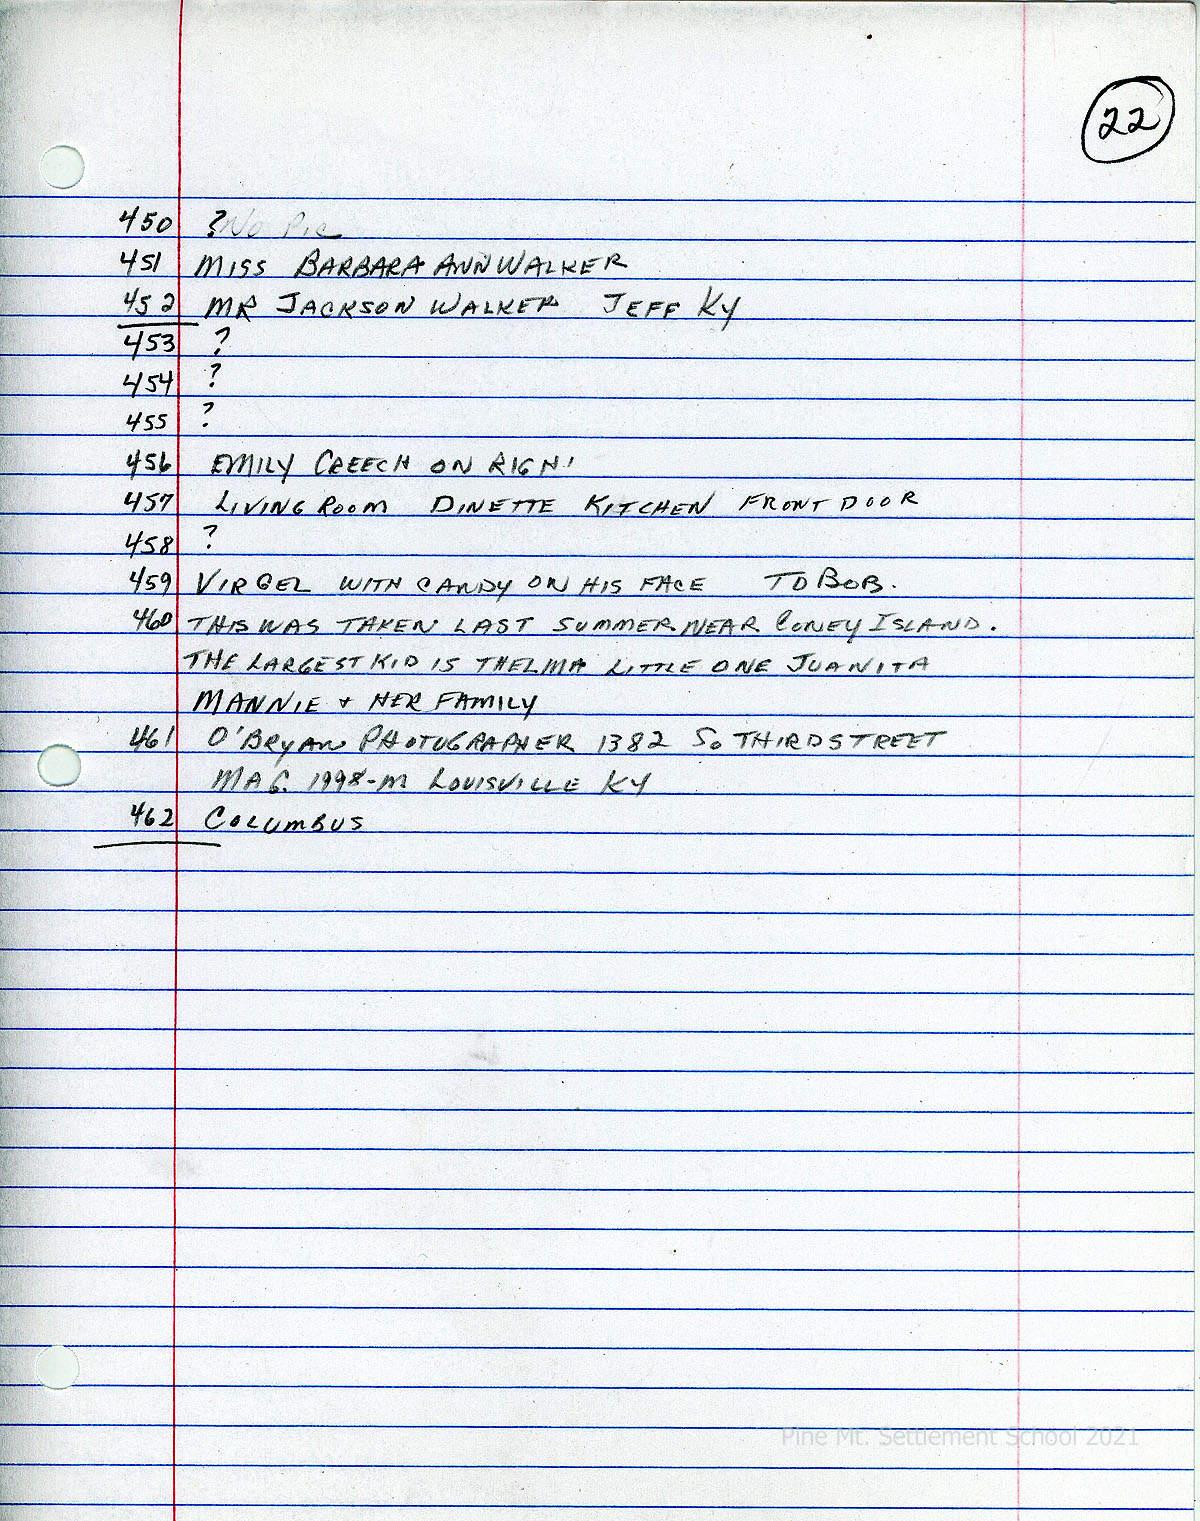 22
450 ? No Pic
451 MISS BARBARA ANN WALKER
452 MR JACKSON WALKER JEFF KY
453 ?
454 ?
455 ?
456 EMILY CREECH ON RIGHT
457 LIVING ROOM DINETTE KITCHEN FRONT DOOR
458 ?
459 VIRGEL WITH CANDY ON HIS FACE TO BOB.
460 THIS WAS TAKEN LAST SUMMER NEAR CONEY ISLAND.
THE LARGEST KID IS THELMA LITTLE ONE JUANITA
MANNIE + HER FAMILY
461 O'BRYAN PHOTOGRAPHER 1382 SO THIRD STREET
MAG. 1998-M LOUISVILLE KY
462 COLUMBUS
Pine Mt. Settlement School 2021